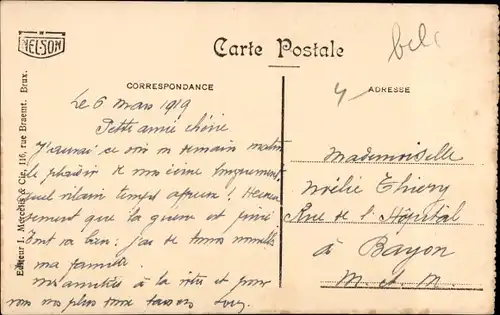 NELSON
Carte Postale
bel
CORRESPONDANCE
ADRESSE
Editeur I. Marcellis & Cie, 116, rue Braemt. Brux.
Le 6 mars 1919
Petite amie chérie
J'aurai ce soir demain matin
le plaisir de
quel vilain temps affreux ! Heureu
sement que la guerre est finie
Tout va bien : j'ai de bonnes nouvelles
ma famille
amitiés à la vôtre et pour
vous mes plus doux baisers
Mademoiselle
Noélie Thiery
Rue de l'Hôpital
à Bayon
M. et M.